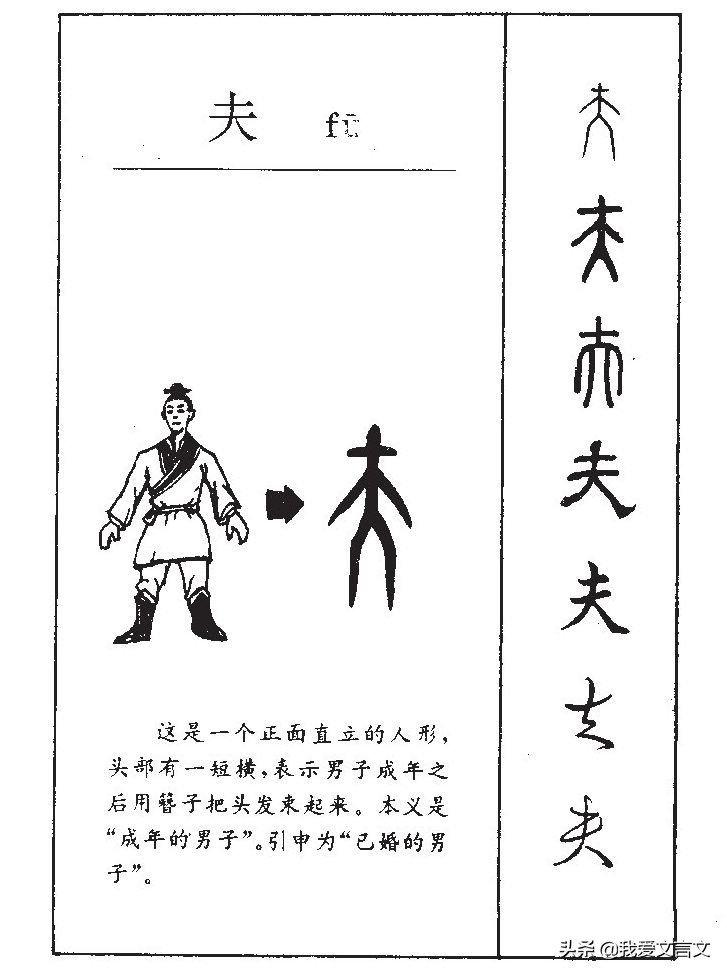 夫 fū
这是一个正面直立的人形，
头部有一短横，表示男子成年之
后用簪子把头发束起来。本义是
“成年的男子”。引申为“已婚的男
子”。
夫
夫
夫
夫
夫
夫
夫
头条 @我爱文言文